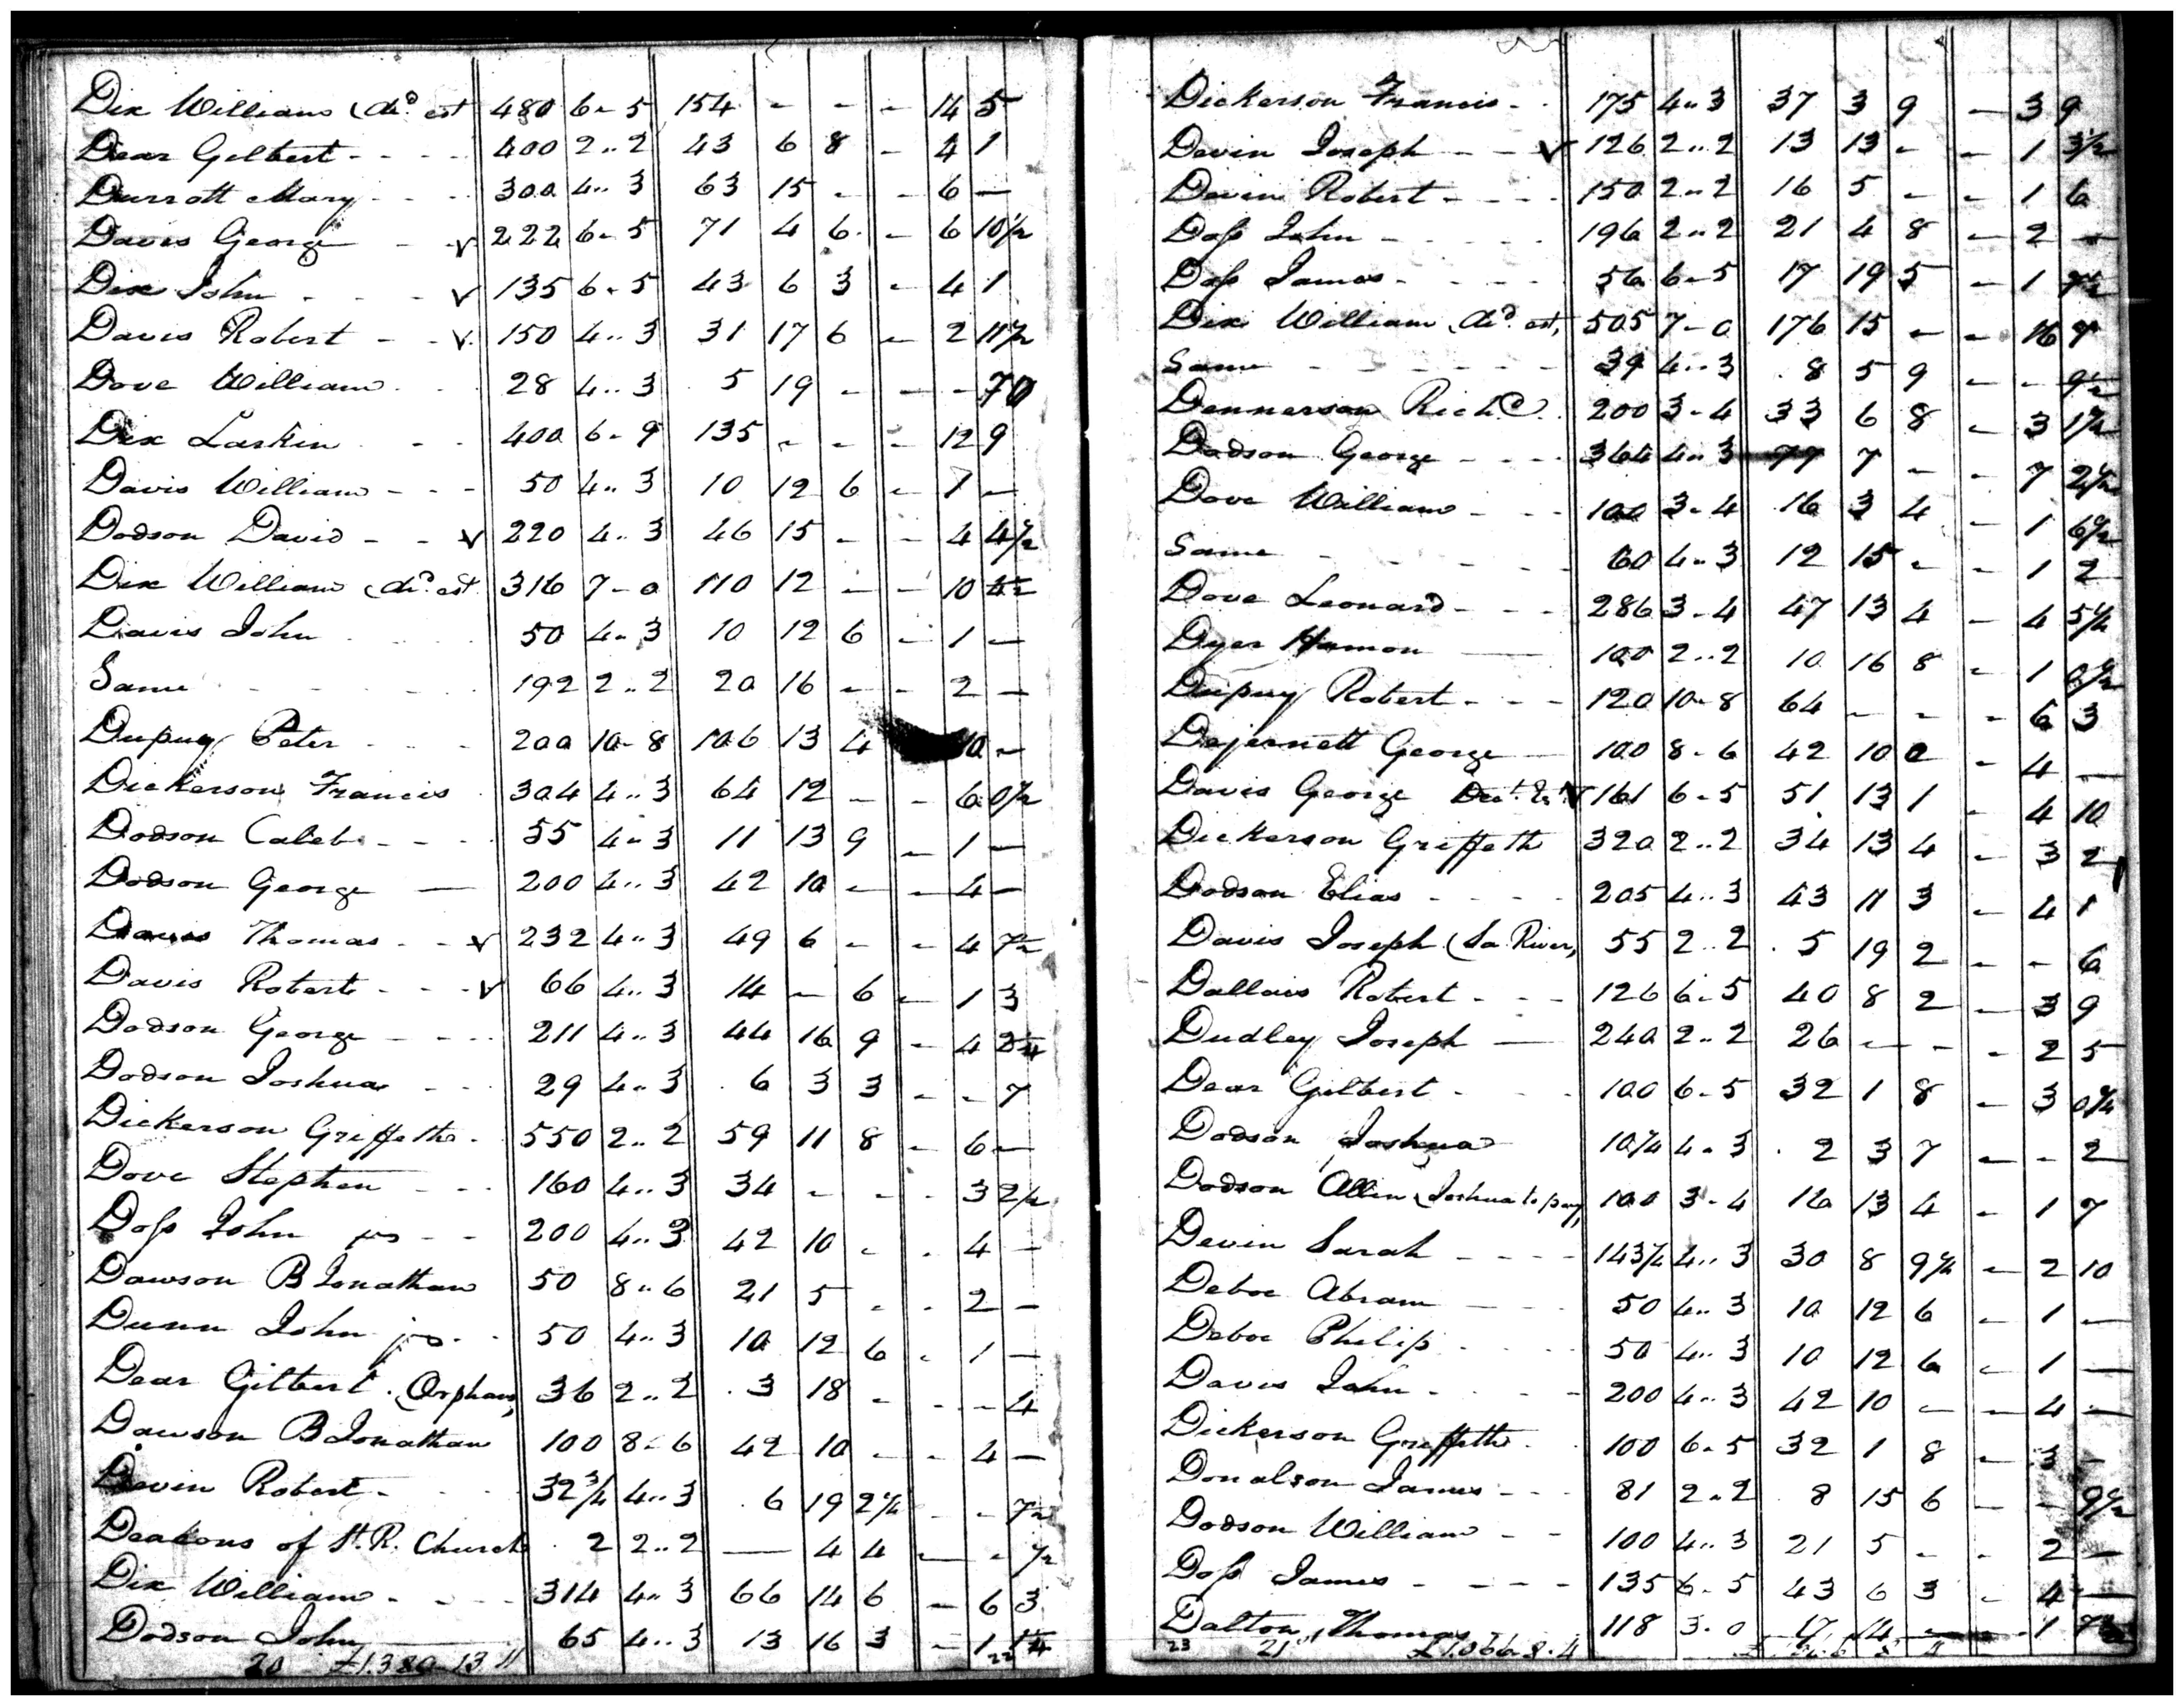 Dix William (dec.d est 480 6..5 154 - - - 14 5
Dear Gilbert 400 2..2 43 6 8 - 4 1
Durrott Mary 300 4..3 63 15 - - 6 -
Davis George v 222 6..5 71 4 6 - 6 10 1/2
Dix John v 135 6..5 43 6 3 - 4 1
Davis Robert v 150 4..3 31 17 6 - 2 11 1/2
Dove William 28 4..3 5 19 - - - 7
Dix Larkin 400 6..9 135 - - - 12 9
Davis William 50 4..3 10 12 6 - 1 -
Dodson David v 220 4..3 46 15 - - 4 4 1/2
Dix William (dec.d est 316 7-0 110 12 - - 10
Davis John 50 4..3 10 12 6 - 1 -
Same 192 2..2 20 16 - - 2 -
Dupuy Peter 200 10-8 106 13 4 10 -
Dickerson Francis 304 4..3 64 12 - - 6 0 1/2
Dodson Caleb 55 4..3 11 13 9 - 1 -
Dodson George 200 4..3 42 10 - - 4 -
Davis Thomas v 232 4..3 49 6 - - 4 7 1/2
Davis Robert v 66 4..3 14 - 6 - 1 3
Dodson George 211 4..3 44 16 9 - 4
Dodson Joshua 29 4..3 6 3 3 - - 7
Dickerson Griffeth 550 2..2 59 11 8 - 6 -
Dove Stephen 160 4..3 34 - - - 3 2 1/2
Doss John jr 200 4..3 42 10 - - 4 -
Dawson B Jonathan 50 8..6 21 5 - - 2 -
Dunn John jr 50 4..3 10 12 6 - 1 -
Dear Gilbert (Orphans) 36 2..2 3 18 - - - 4
Dawson B Jonathan 100 8..6 42 10 - - 4 -
Devin Robert 32 3/4 4..3 6 19 2 1/4 - - 7 1/2
Deakons of St. R. Church 2 2..2 - 4 4 - - 1/2
Dix William 314 4..3 66 14 6 - 6 3
Dodson John 65 4..3 13 16 3 - 1
20 £1.380-13 11 22
Dickerson Francis 175 4..3 37 3 9 - 3 9
Devin Joseph v 126 2..2 13 13 - - 1 3 1/2
Devin Robert 150 2..2 16 5 - - 1 6
Doss John 196 2..2 21 4 8 - 2 -
Doss James 56 6..5 17 19 5 - 1 7 1/2
Dix William (dec.d est) 505 7-0 176 15 - - 16 9
Same 39 4..3 8 5 9 - - 9 1/2
Dennerson Rich.d 200 3-4 33 6 8 - 3 1 1/2
Dodson George 364 4..3 77 7 - - 7 2 1/2
Dove William 100 3-4 16 3 4 - 1 6 1/2
Same 60 4..3 12 15 - - 1 2
Dove Leonard 286 3-4 47 13 4 - 4 5 1/4
Dyer Hamon 100 2..2 10 16 8 - 1 0 1/2
Dupuy Robert 120 10-8 64 - - - 6 3
Dejernett George 100 8-6 42 10 0 - 4 -
Davis George v 161 6-5 51 13 1 - 4 10
Dickerson Griffeth 320 2..2 34 13 4 - 3 2
Dodson Elias 205 4..3 43 11 3 - 4 1
Davis Joseph (Sa. River) 55 2..2 5 19 2 - - 6
Dallais Robert 126 6-5 40 8 2 - 3 9
Dudley Joseph 240 2..2 26 - - - 2 5
Dear Gilbert 100 6-5 32 1 8 - 3 0 1/4
Dodson Joshua 10 1/4 4-3 2 3 7 - - 2
Dodson Allen (Joshua to pay) 100 3-4 16 13 4 - 1 7
Devin Sarah 143 1/4 4..3 30 8 9 1/4 - 2 10
Deboe Abram 50 4..3 10 12 6 - 1 -
Deboe Philip 50 4..3 10 12 6 - 1 -
Davis John 200 4..3 42 10 - - 4 -
Dickerson Griffeth 100 6-5 32 1 8 - 3 -
Donalson James 81 2..2 8 15 6 - - 9 1/2
Dodson William 100 4..3 21 5 - - 2 -
Doss James 135 6-5 43 6 3 - 4 -
Dalton Thomas 118 3-0 17 14 - - 1
23 21 £1.066.8.4